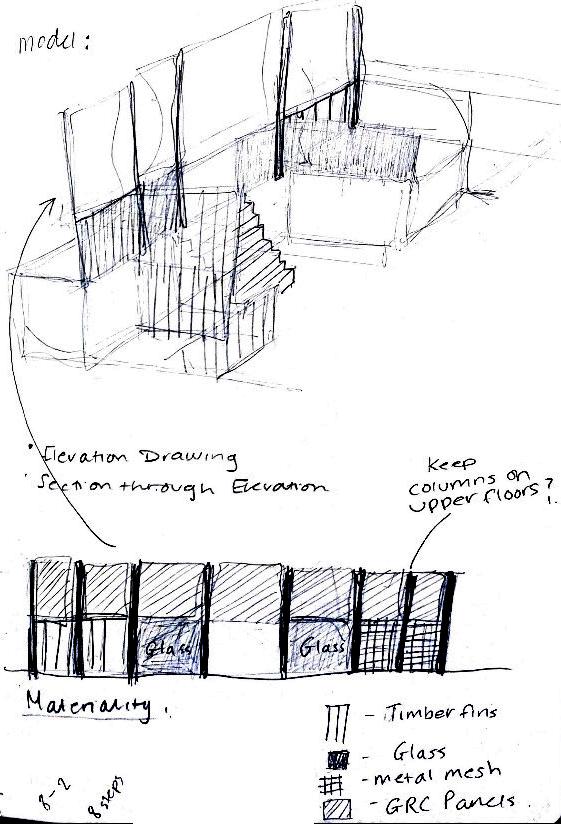 model:
• Elevation Drawing
• Section through Elevation
Keep
columns on
upper floors?!
Glass
Glass
Materiality.
- Timber fins
- Glass
- metal mesh
- GRC Panels.
8-2
8 steps